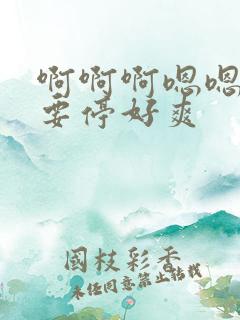 啊啊啊嗯嗯
要停好爽
國枝彩香
未经同意禁止转载